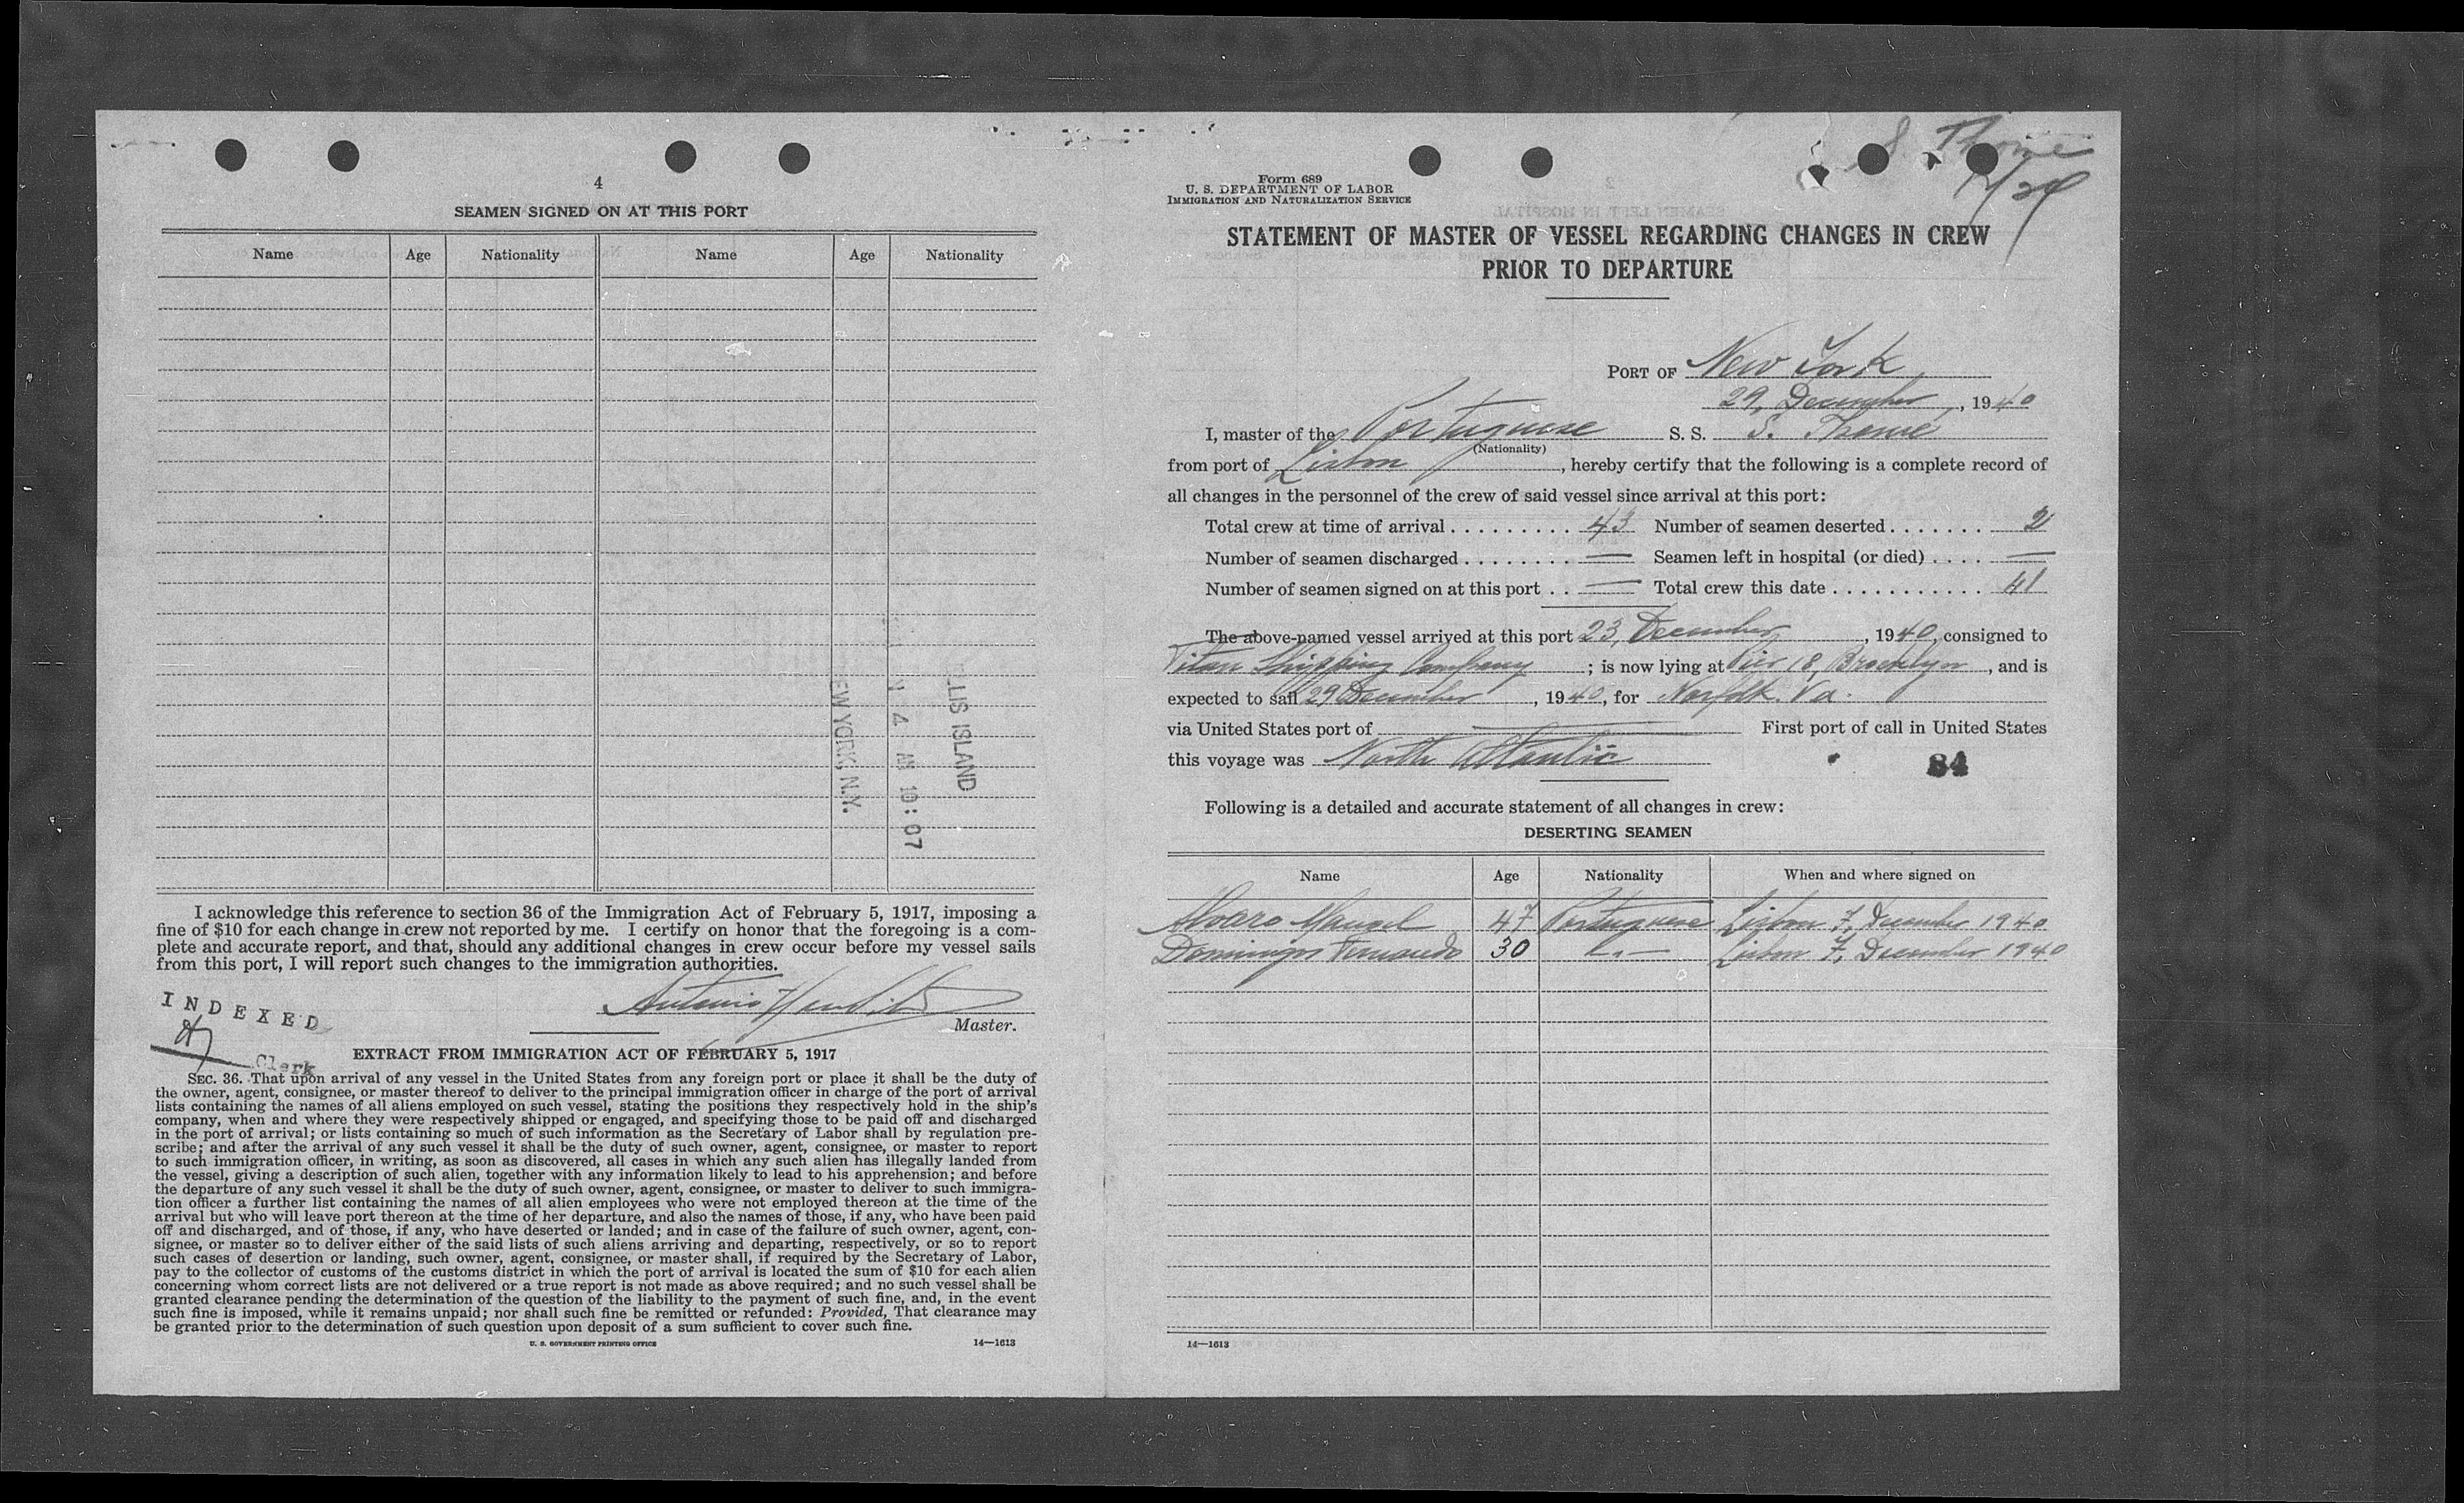 4
SEAMEN SIGNED ON AT THIS PORT
Name Age Nationality Name Age Nationality
ELLIS ISLAND
4 AM 10:07
NEW YORK, N.Y.
I acknowledge this reference to section 36 of the Immigration Act of February 5, 1917, imposing a
fine of $10 for each change in crew not reported by me. I certify on honor that the foregoing is a com-
plete and accurate report, and that, should any additional changes in crew occur before my vessel sails
from this port, I will report such changes to the immigration authorities.
INDEXED
Antonio
Master.
Clerk
EXTRACT FROM IMMIGRATION ACT OF FEBRUARY 5, 1917
SEC. 36. That upon arrival of any vessel in the United States from any foreign port or place it shall be the duty of
the owner, agent, consignee, or master thereof to deliver to the principal immigration officer in charge of the port of arrival
lists containing the names of all aliens employed on such vessel, stating the positions they respectively hold in the ship's
company, when and where they were respectively shipped or engaged, and specifying those to be paid off and discharged
in the port of arrival; or lists containing so much of such information as the Secretary of Labor shall by regulation pre-
scribe; and after the arrival of any such vessel it shall be the duty of such owner, agent, consignee, or master to report
to such immigration officer, in writing, as soon as discovered, all cases in which any such alien has illegally landed from
the vessel, giving a description of such alien, together with any information likely to lead to his apprehension; and before
the departure of any such vessel it shall be the duty of such owner, agent, consignee, or master to deliver to such immigra-
tion officer a further list containing the names of all alien employees who were not employed thereon at the time of the
arrival but who will leave port thereon at the time of her departure, and also the names of those, if any, who have been paid
off and discharged, and of those, if any, who have deserted or landed; and in case of the failure of such owner, agent, con-
signee, or master so to deliver either of the said lists of such aliens arriving and departing, respectively, or so to report
such cases of desertion or landing, such owner, agent, consignee, or master shall, if required by the Secretary of Labor,
pay to the collector of customs of the customs district in which the port of arrival is located the sum of $10 for each alien
concerning whom correct lists are not delivered or a true report is not made as above required; and no such vessel shall be
granted clearance pending the determination of the question of the liability to the payment of such fine, and, in the event
such fine is imposed, while it remains unpaid; nor shall such fine be remitted or refunded: Provided, That clearance may
be granted prior to the determination of such question upon deposit of a sum sufficient to cover such fine.
U. S. GOVERNMENT PRINTING OFFICE 14—1613
S. Thomé
12/29
Form 689
U. S. DEPARTMENT OF LABOR
IMMIGRATION AND NATURALIZATION SERVICE
STATEMENT OF MASTER OF VESSEL REGARDING CHANGES IN CREW
PRIOR TO DEPARTURE
PORT OF New York
29, December, 1940
I, master of the Portuguese S. S. S. Thomé
(Nationality)
from port of Lisbon, hereby certify that the following is a complete record of
all changes in the personnel of the crew of said vessel since arrival at this port:
Total crew at time of arrival . . . . . . . . . 43 Number of seamen deserted . . . . . . . 2
Number of seamen discharged . . . . . . . . — Seamen left in hospital (or died) . . . . —
Number of seamen signed on at this port . . — Total crew this date . . . . . . . . . . . 41
The above-named vessel arrived at this port 23, December, 1940, consigned to
Titan Shipping Company; is now lying at Pier 18, Brooklyn, and is
expected to sail 29 December, 1940, for Norfolk. Va.
via United States port of — First port of call in United States
this voyage was North Atlantic
84
Following is a detailed and accurate statement of all changes in crew:
DESERTING SEAMEN
Name Age Nationality When and where signed on
Alvaro Manuel 47 Portuguese Lisbon 7, December 1940
Domingos Fernando 30 " Lisbon 7, December 1940
14—1613